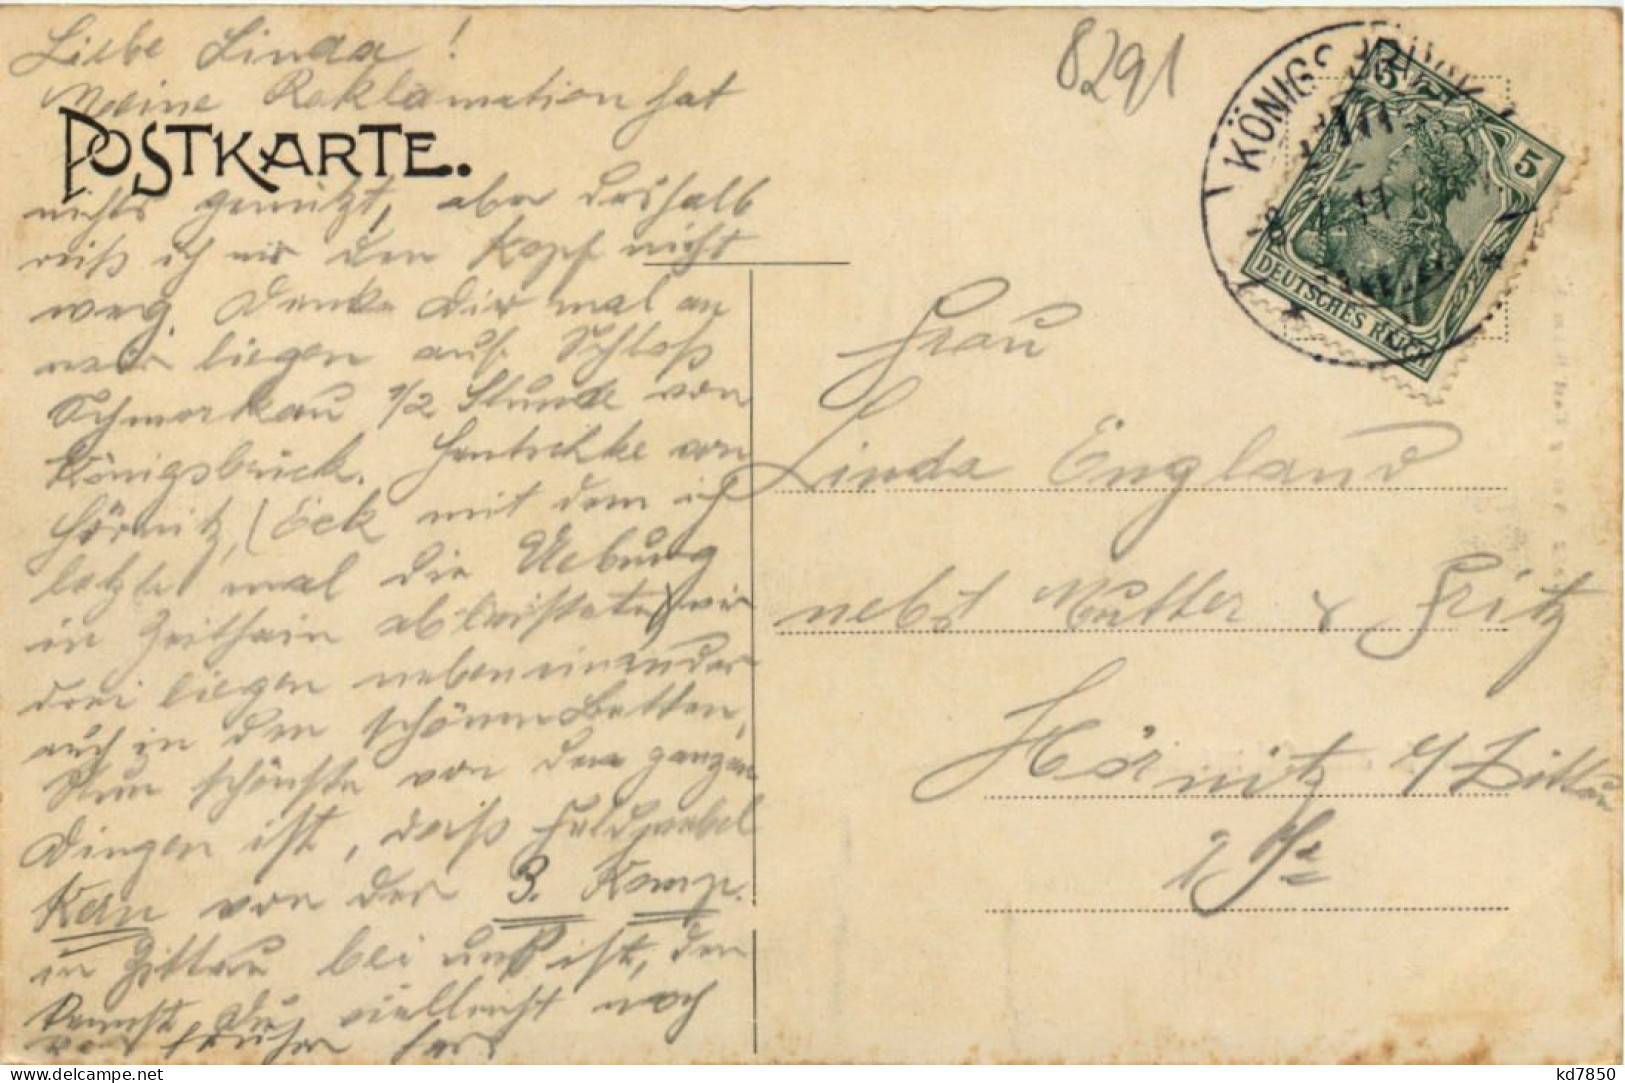 Liebe Linda!
Meine Reklamation hat
POSTKARTE.
nichts genützt, aber deshalb
reiß ich mir den Kopf nicht
weg. Denke Dir mal an
wir liegen auf Schloß
Schmorkau 1/2 Stunde von
Königsbrück. Hentschke von
Hörnitz, (Eck mit dem ich
letzte mal die Uebung
in Zeithain ableistete) wir
drei liegen nebeneinander
auch in den schönen Betten,
Nun schönste von dem ganzen
Dingen ist, daß Feldwebel
Kern von der 3. Komp.
in Zittau bei uns ist, den
kennst du vielleicht noch
von früher her
8291
KÖNIGSBRÜCK
8 17
5
5
DEUTSCHES REICH
Frau
Linda England
nebst Mutter & Fritz
Hörnitz b/ Zittau
i/Sa
kd7850